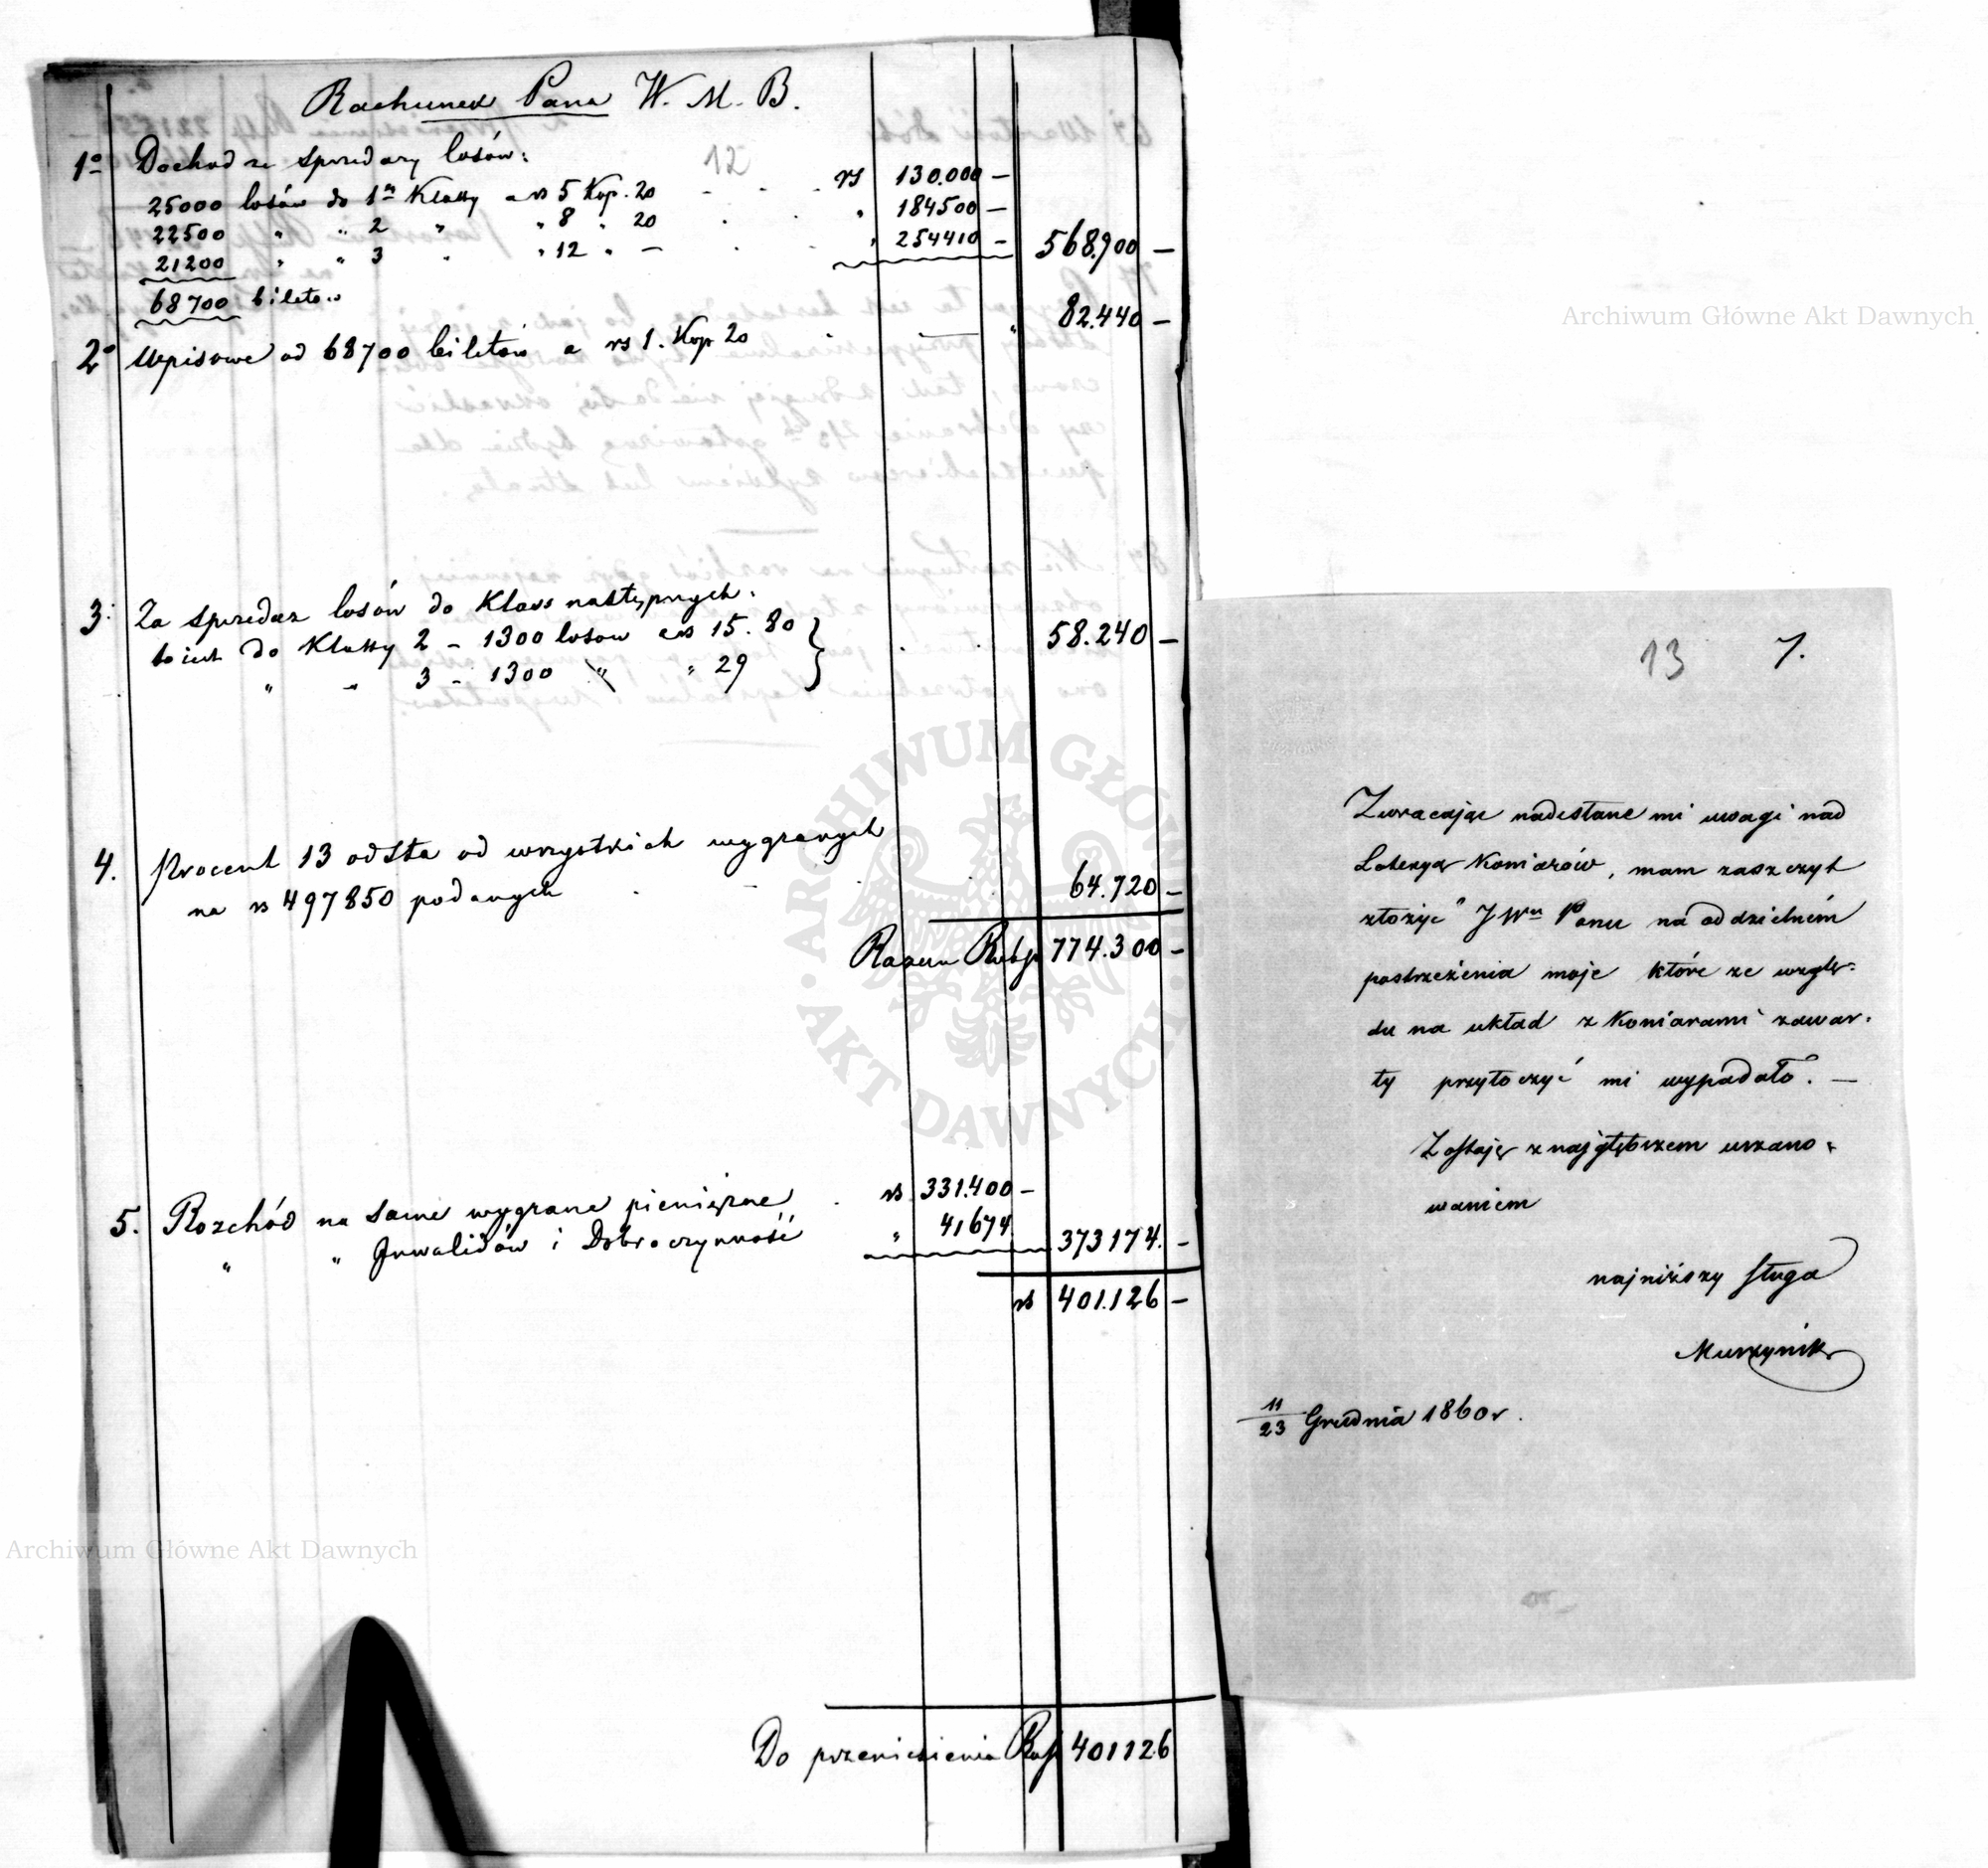 Rachunek Pana W. M. B.
12
1o Dochod ze sprzedazy losów:
25000 losów do 1ej Klassy a rs 5 Kop. 20 - - - rs 130.000 —
22500 " " 2 " " 8 " 20 . . " 184500 —
21200 " " 3 " " 12 " — . . " 254410 — 568,900 —
68700 biletow
2o Wpisowe od 68700 biletów a rs 1. Kop 20 . — " 82.440 —
3. Za sprzedaz losów do Klass następnych.
to iest do Klassy 2 – 1300 losow a rs 15. 80 } . . 58.240 —
" " 3 – 1300 " " 29
4. Procent 13 odsta od wszystkich wygranych
na rs 497850 podanych . - . . 64.720 —
Razem Rubsr 774.300 —
5. Rozchód na same wygrane pieniężne . rs 331.400 —
" " Inwalidów i Dobroczynność " 41674 373174. —
rs 401.126 —
Do przeniesienia Rusr 401126
13 7.
Zwracając nadesłane mi uwagi nad
Loteryą Koniarów, mam zaszczyt
złożyć JWu Panu na oddzielném
postrzeżenia moje które ze wzglę:
du na układ z Koniarami zawar:
ty przytoczyć mi wypadało. —
Zostaję z najgłębszem uszano:
waniem
najniższy sługa
Muszyński
11/23 Grudnia 1860 r.
Archiwum Główne Akt Dawnych
Archiwum Główne Akt Dawnych
ARCHIWUM GŁÓWNE · AKT DAWNYCH ·